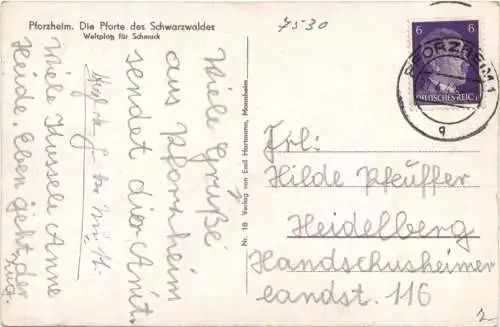 Pforzheim. Die Pforte des Schwarzwaldes
Weltplatz für Schmuck
7530
6 6
DEUTSCHES REICH
PFORZHEIM 1
q
Viele Grüße
aus Pforzheim
sendet dir Anit.
Viele Küssele Anne
Heide. Eben geht der
Zug.
Nr. 18 Verlag von Emil Hartmann, Mannheim
Frl:
Hilde Pfeuffer
Heidelberg
Handschusheimer
landst. 116
2